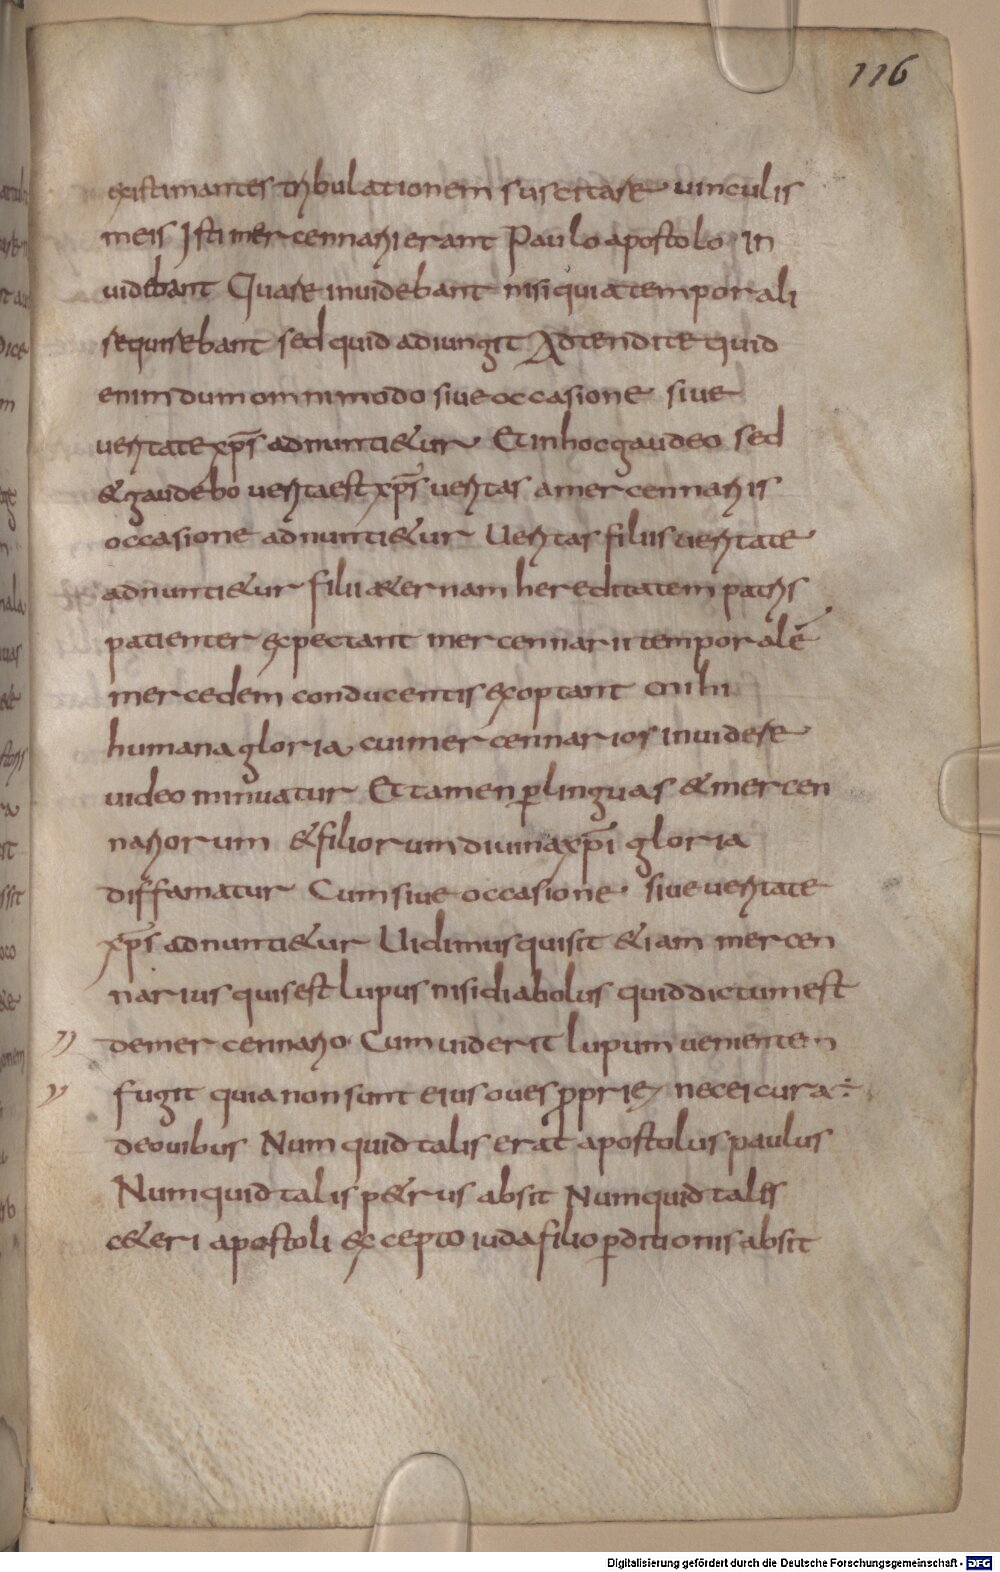 116
existimantes tribulationem suscitare uinculis
meis Isti mercennarii erant Paulo apostolo in
uidebant Quare inuidebant nisi quia temporali
sequirebant sed quid adiungit Adtendite quid
enim dum omnimodo siue occasione siue
ueritate xp̄s adnuntietur Et in hoc gaudeo sed
& gaudebo ueritas est xp̄s ueritas a mercennariis
occasione adnunti&ur Ueritas filiis ueritate
adnunti&ur filii a&ernam hereditatem patris
patienter expectant mercennarii temporalē
mercedem conducentis exoptant mihi
humana gloria cui mercennarios inuidere
uideo minuatur Et tamen ꝑ linguas & mercen
nariorum & filiorum diuina xp̄i gloria
diffamatur Cum siue occasione siue ueritate
xp̄s adnunti&ur Uidimus quis sit &iam mercen
narius quis est lupus nisi diabolus quid dictum est
de mercennario Cum uiderit lupum uenientem
fugit quia non sunt eius oues ꝓprię nec ei cura ÷
de ouibus Numquid talis erat apostolus paulus
Numquid talis p&rus absit Numquid tales
c&eri apostoli excepto iuda filio ꝑditionis absit
Digitalisierung gefördert durch die Deutsche Forschungsgemeinschaft - DFG